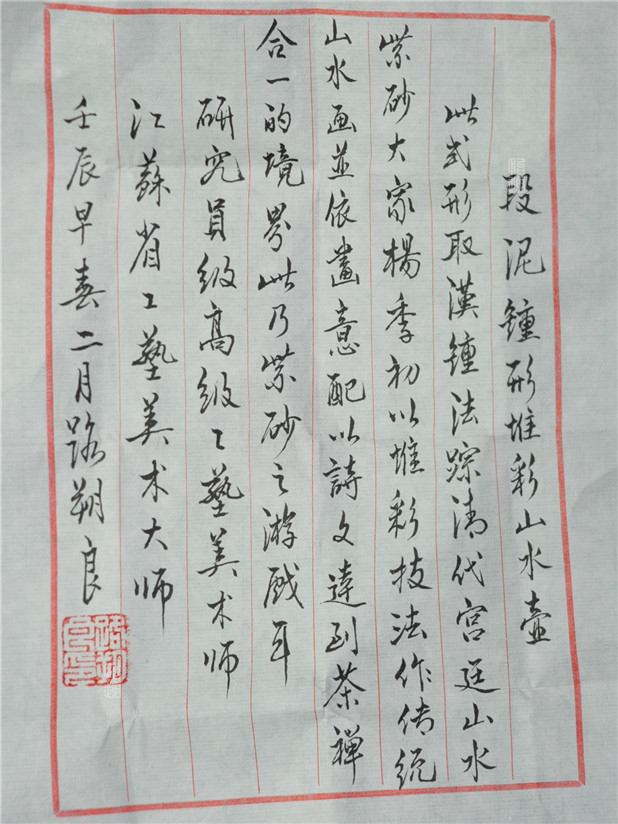 段泥鍾形堆彩山水壺
此式形取漢鍾法踪清代宫廷山水
紫砂大家楊季初以堆彩技法作传统
山水画並依畫意配以詩文達到茶禅
合一的境界此乃紫砂之游戲耳
研究員级高级工藝美术师
江蘇省工藝美术大师
壬辰早春二月路朔良